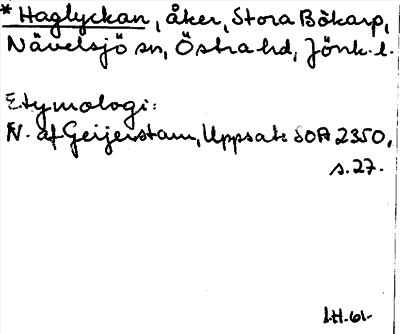 * Haglyckan, åker, Stora Bökarp,
Nävelsjö sn, Östra hd, Jönk. l.
Etymologi:
N. af Geijerstam, Uppsats SOA 2350,
s. 27.
I.H. 61.